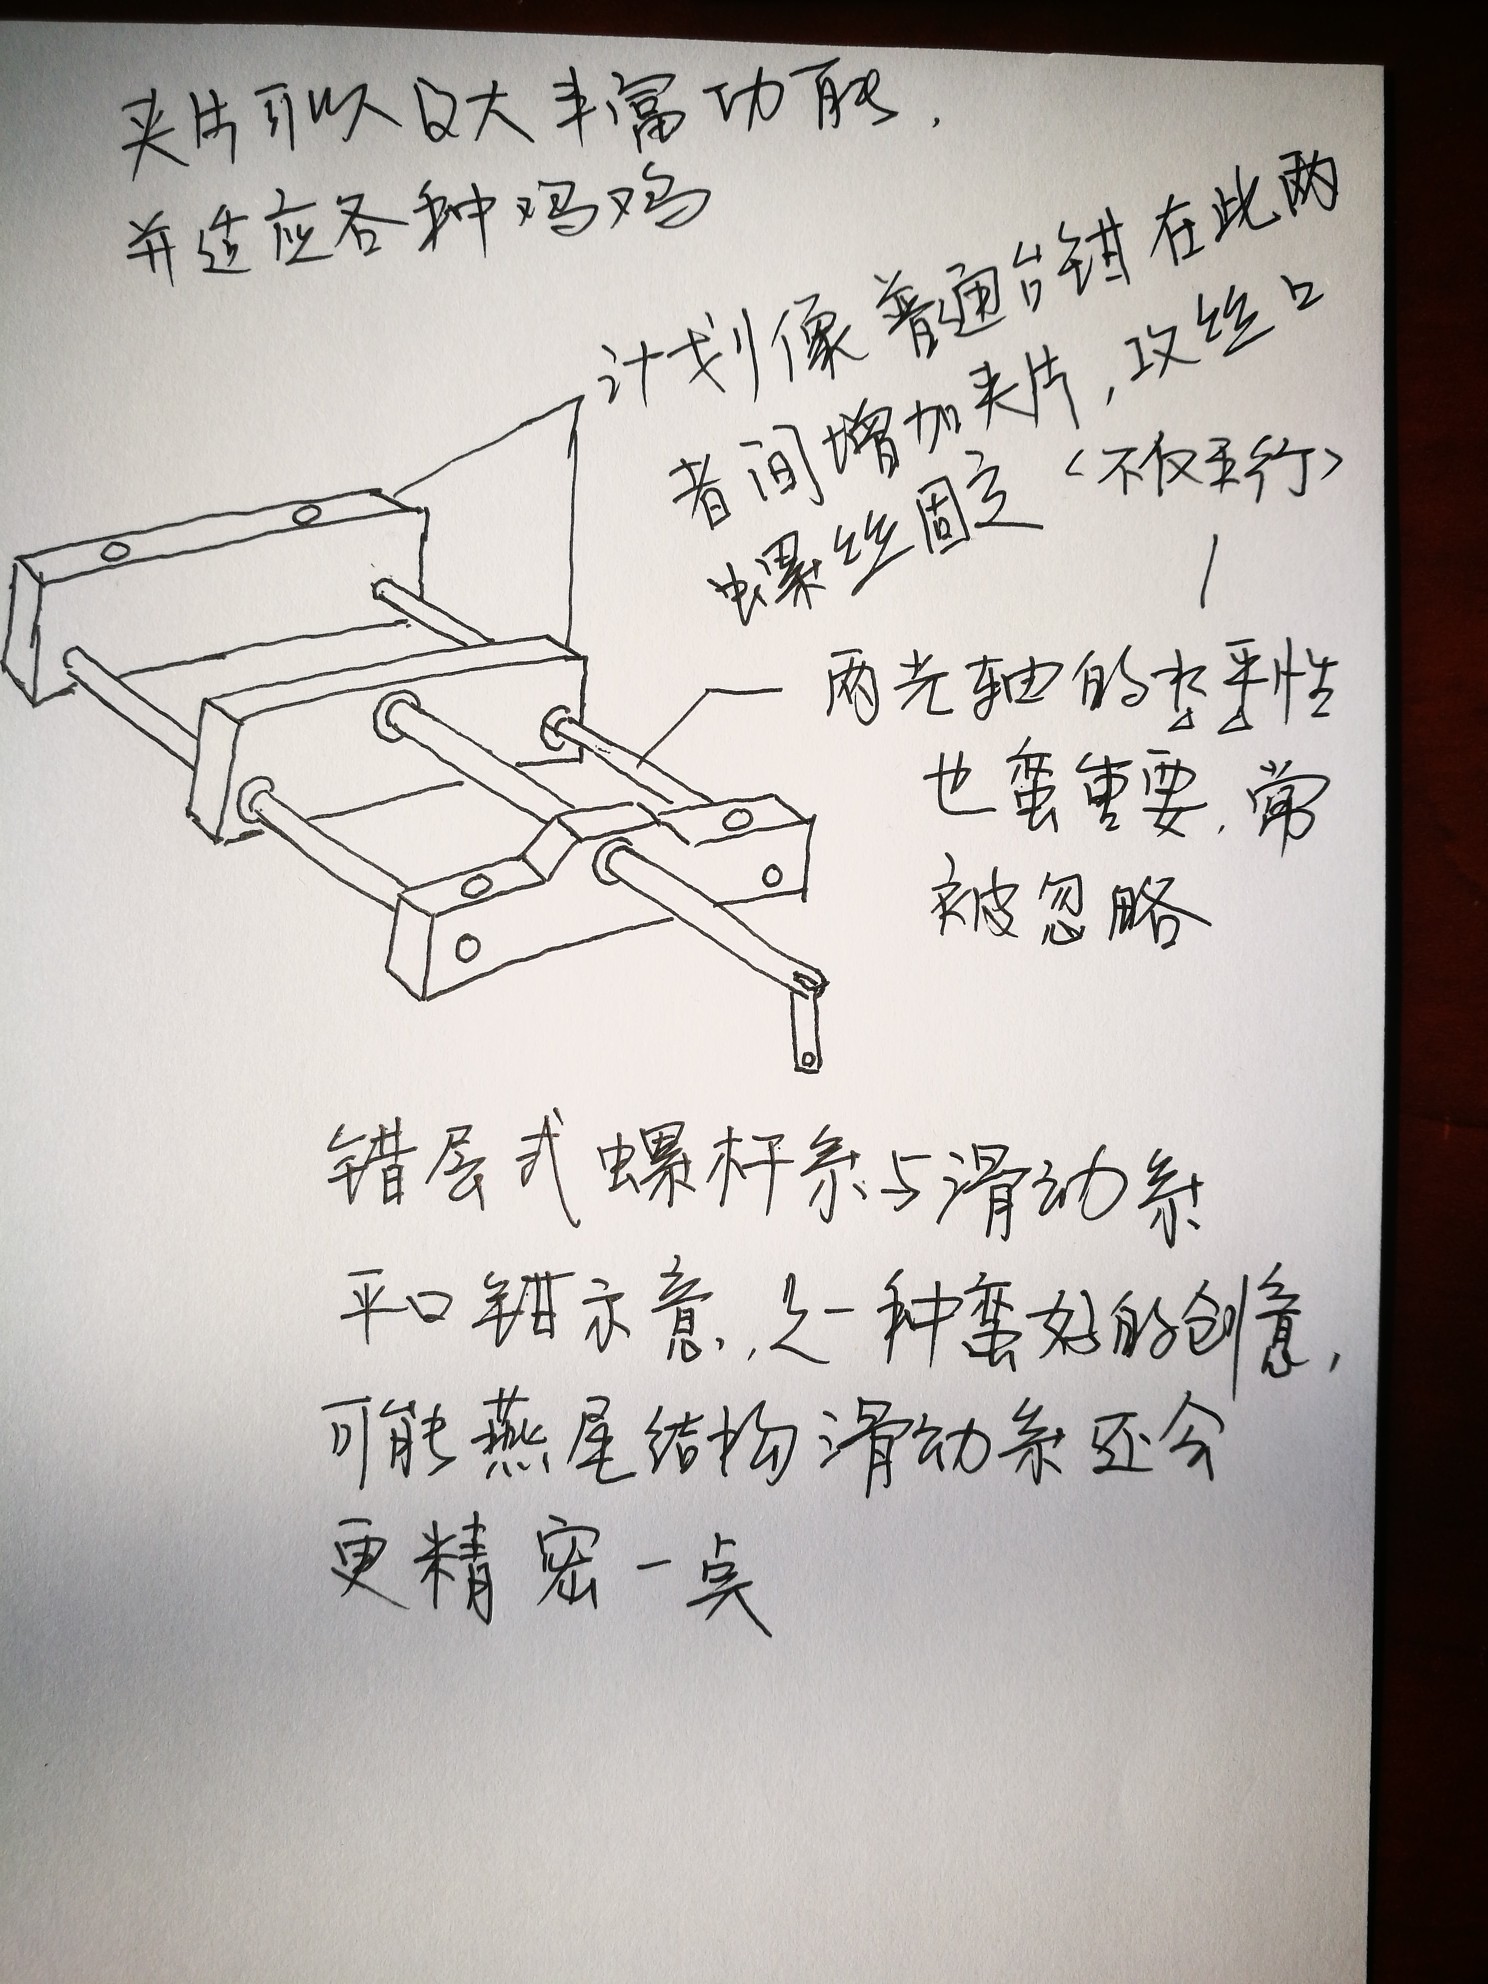 夹片可以极大丰富功能，
并适应各种鸡鸡
计划像普通台钳在此两
者间增加夹片，攻丝口
螺丝固定〈不仅平行〉
两光轴的水平性
也蛮重要，常
被忽略
错层式螺杆系与滑动系
平口钳示意，是一种蛮好的创意，
可能燕尾结构滑动系还会
更精密一点